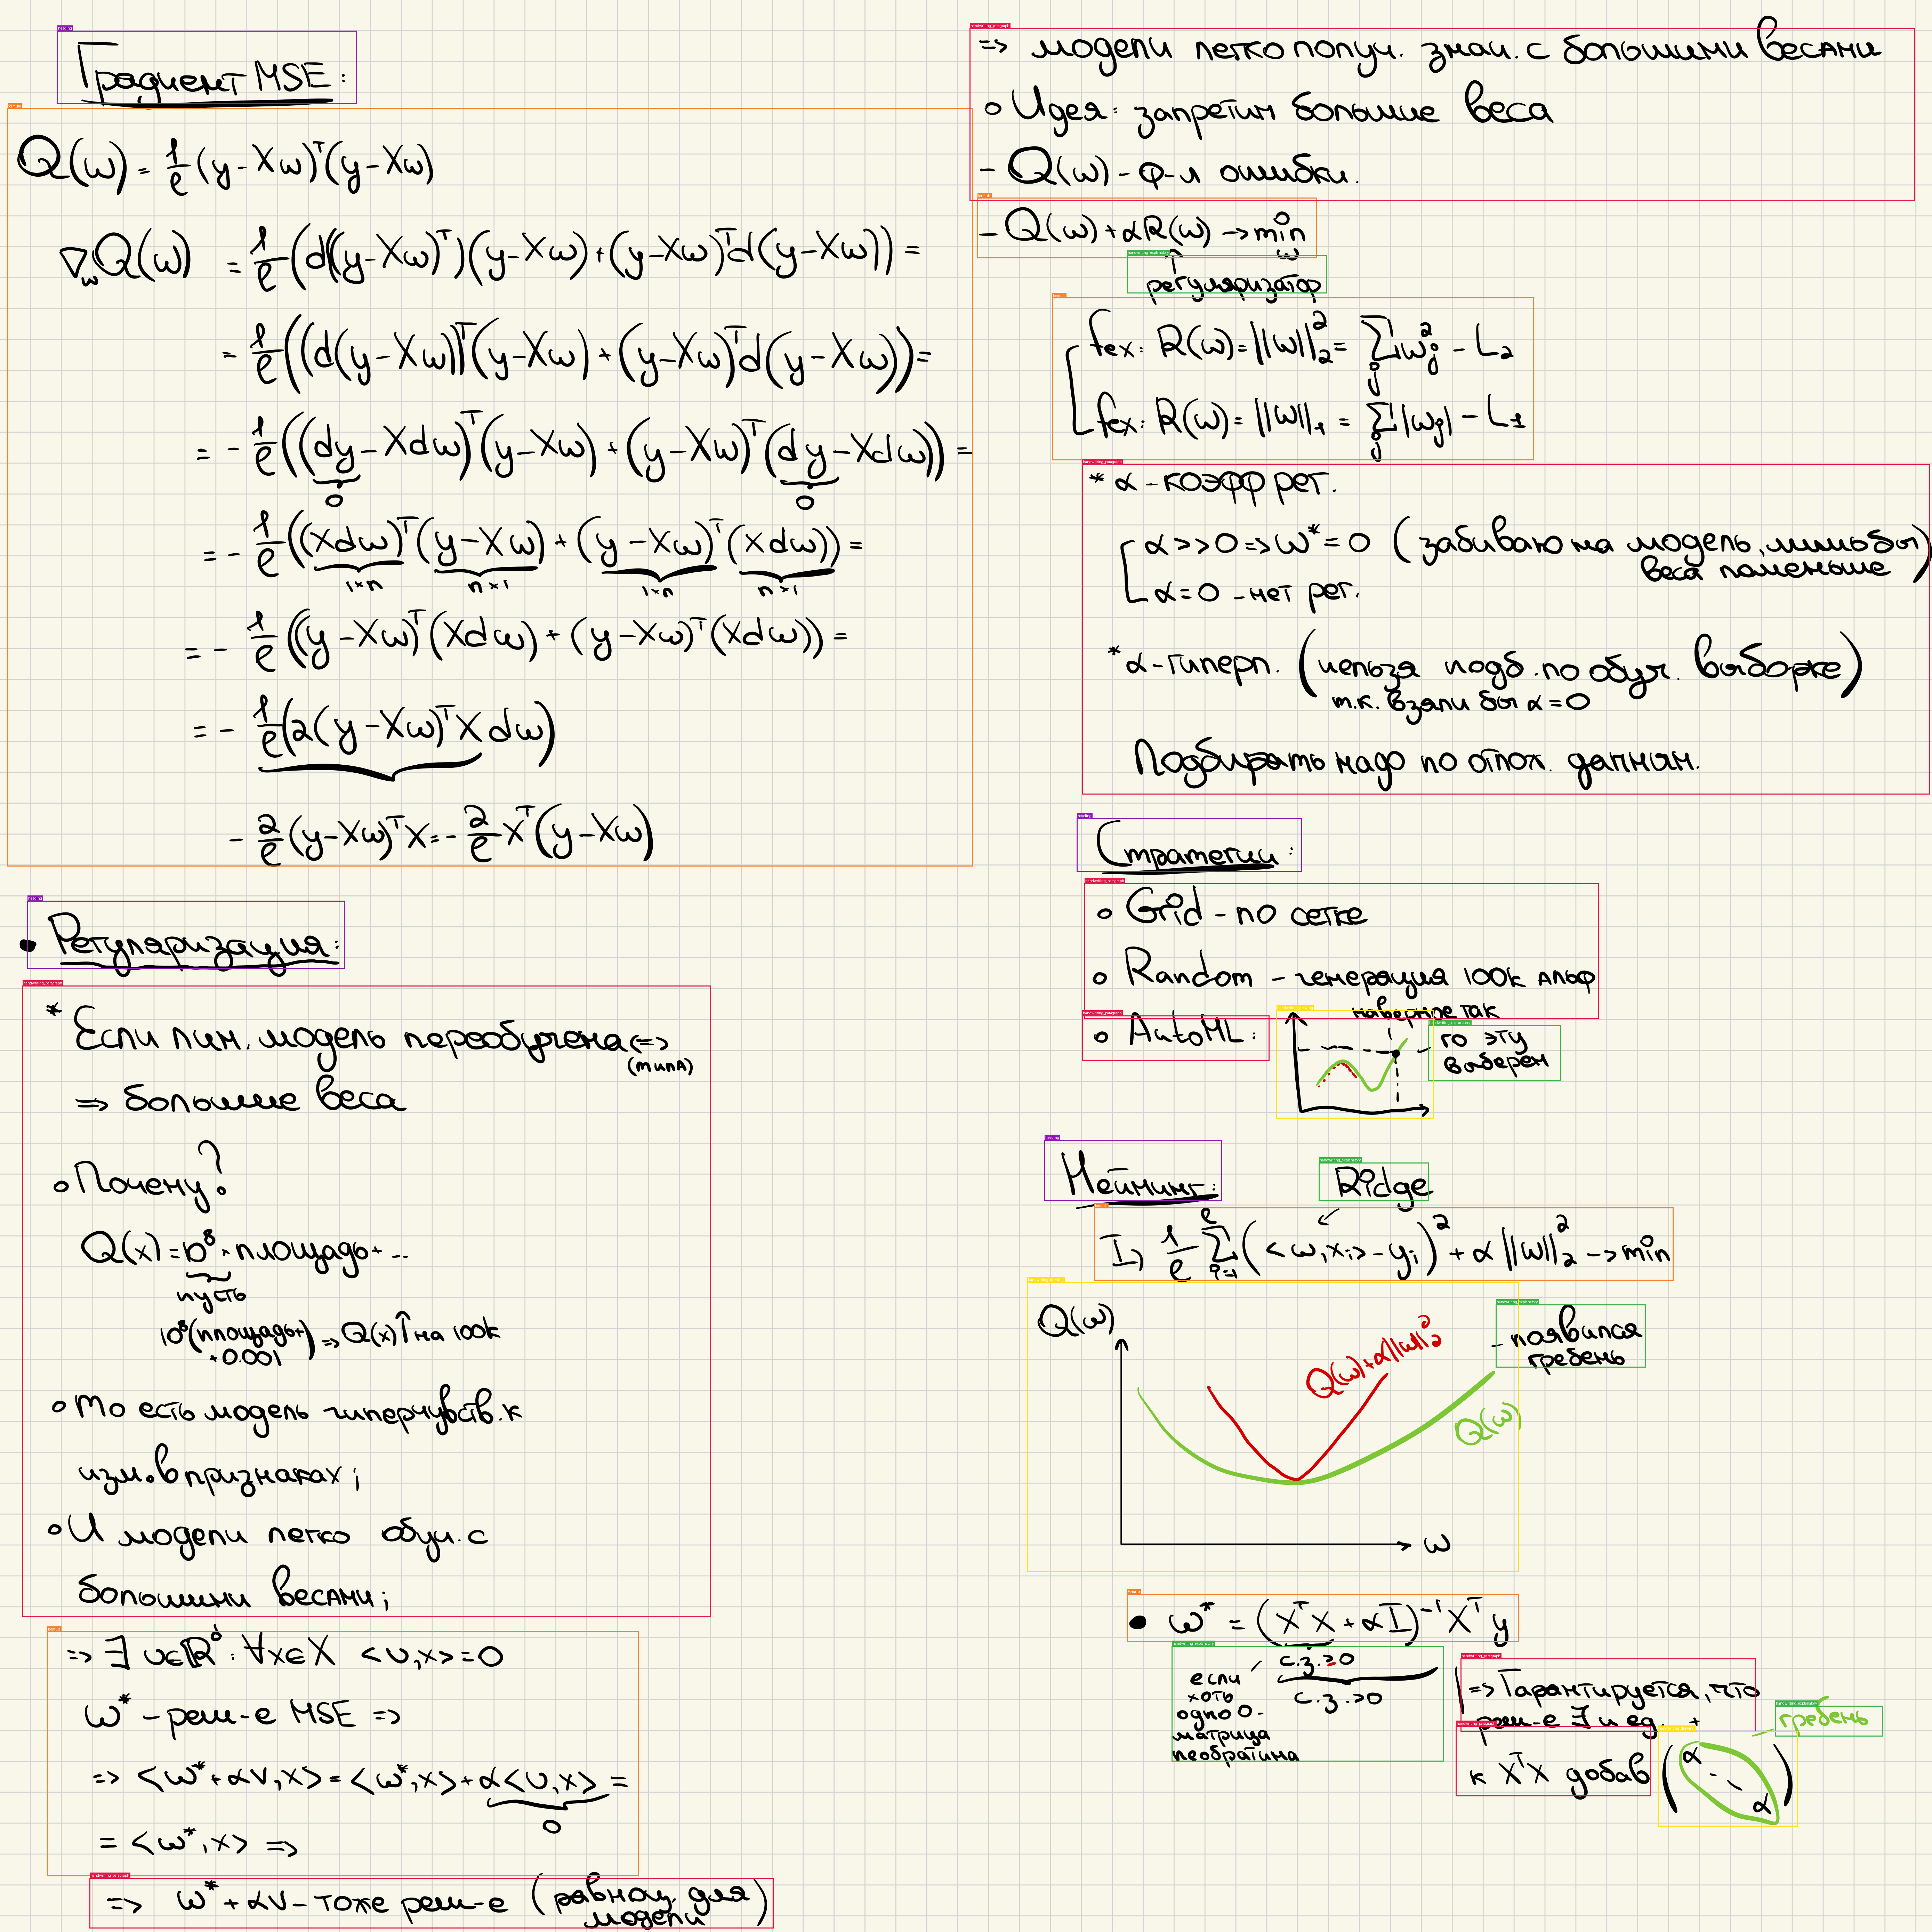 Градиент MSE:
Q(ω) = 1/ℓ (y - Xω)ᵀ(y - Xω)
∇_ω Q(ω) = 1/ℓ (d((y-Xω)ᵀ)(y-Xω) + (y-Xω)ᵀd(y-Xω)) =
= 1/ℓ ((d(y-Xω))ᵀ(y-Xω) + (y-Xω)ᵀd(y-Xω)) =
= - 1/ℓ ((dy - Xdω)ᵀ(y-Xω) + (y-Xω)ᵀ(dy - Xdω)) =
0 0
= - 1/ℓ ((Xdω)ᵀ(y-Xω) + (y-Xω)ᵀ(Xdω)) =
1×n n×1 1×n n×1
= - 1/ℓ ((y-Xω)ᵀ(Xdω) + (y-Xω)ᵀ(Xdω)) =
= - 1/ℓ (2(y-Xω)ᵀX dω)
- 2/ℓ (y-Xω)ᵀX = - 2/ℓ Xᵀ(y-Xω)
• Регуляризация:
* Если лин. модель переобучена <=>
(типА)
=> большие веса
∘ Почему?
Q(x) = 10⁸ · площадь + ...
пусть
10⁸(площадь + 0.001) => Q(x)↑ на 100k
∘ То есть модель гиперчувств. к
изм. в признаках;
∘ И модели легко обуч. с
большими весами;
=> ∃ υ∈ℝᵈ : ∀x∈X <υ,x> = 0
ω* - реш-е MSE =>
=> <ω*+αv,x> = <ω*,x> + α<υ,x> =
0
= <ω*,x> =>
=> ω*+αv - тоже реш-е (равнозн. для
модели)
=> модели легко получ. знач. с большими весами
∘ Идея: запретим большие веса
- Q(ω) - ф-л ошибки.
- Q(ω) + αR(ω) → min
ω
↑
регуляризатор
fex: R(ω) = ||ω||₂² = Σⱼ ωⱼ² - L₂
fex: R(ω) = ||ω||₁ = Σⱼ |ωⱼ| - L₁
* α - коэфф рег.
α>>0 => ω* = 0 (забиваю на модель, лишь бы
веса поменьше)
α=0 - нет рег.
* α - гиперп. (нельзя подб. по обуч. выборке)
т.к. взяли бы α=0
Подбирать надо по отлож. данным.
Стратегии:
∘ Grid - по сетке
∘ Random - генерация 100k альф
наверное так
∘ AutoML:
то эту
выберем
Мейнинг:
Ridge
I) 1/ℓ Σᵢ₌₁^ℓ (<ω,xᵢ> - yᵢ)² + α||ω||₂² → min
Q(ω)
Q(ω)+α||ω||₂²
- появился
гребень
Q(ω)
ω
• ω* = (XᵀX + αI)⁻¹Xᵀy
с.з. ≥0
с.з. >0
если
хоть
одно 0 -
матрица
необратима
=> Гарантируется, что
реш-е ∃ и ед. +
гребень
к XᵀX добав (α ⋱ α)